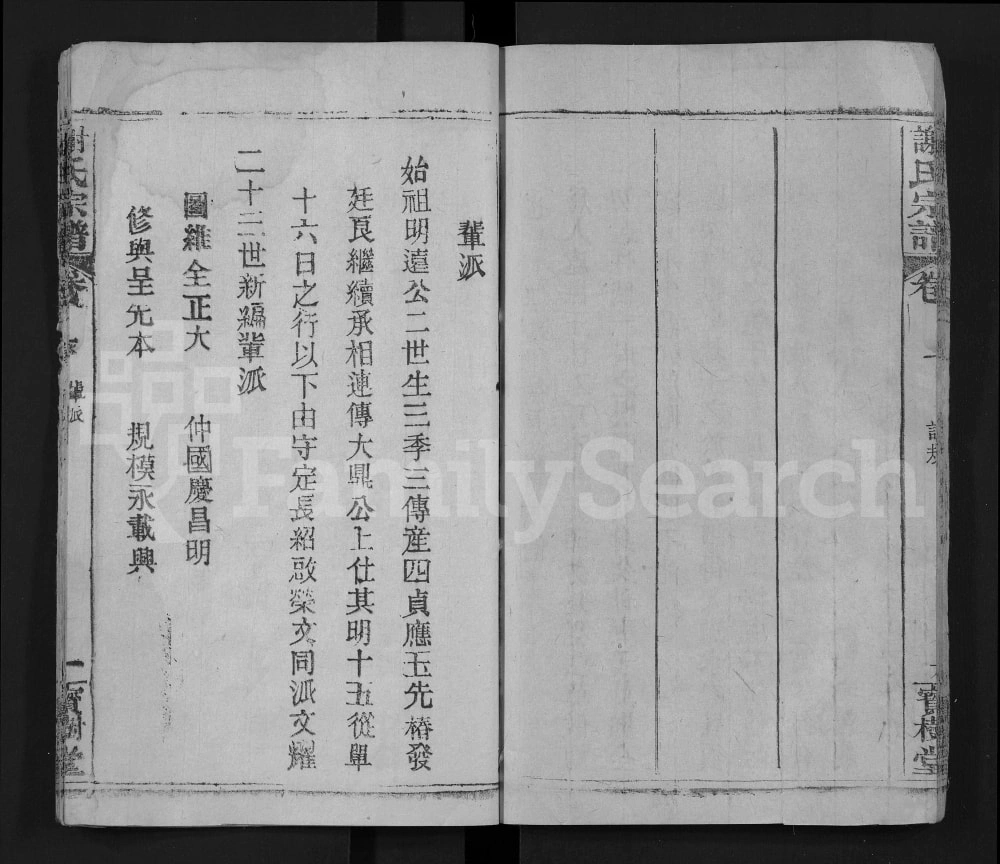 謝氏宗譜
卷一
譜規
寶樹堂
輩派
始祖明遠公二世生三季三傳産四貞應玉先椿發
廷良繼續承相連傳大鼎公上仕其明十五從單
十六日之行以下由守定長紹啟榮文同派文耀
二十三世新編輩派
圖維全正大 仲國慶昌明
修與呈先本 規模永載興
謝氏宗譜
卷
輩派
寶樹堂
FamilySearch